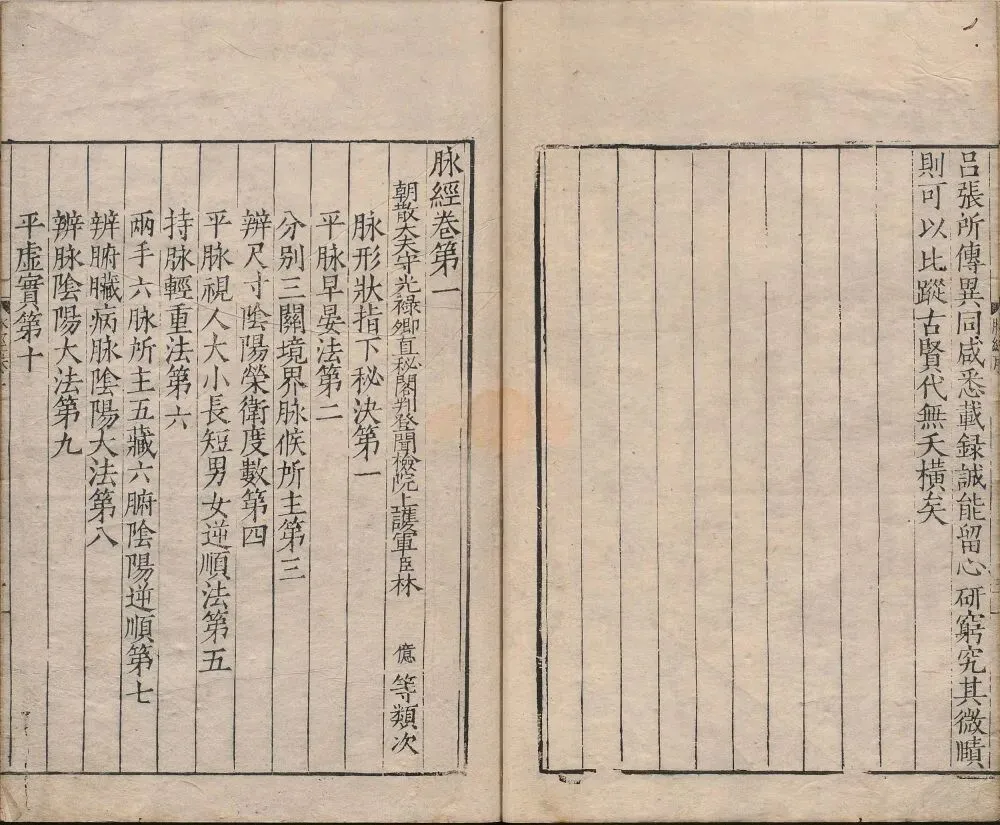 吕張所傳異同咸悉載録誠能留心研窮究其微賾
則可以比蹤古賢代無夭橫矣
脉經卷第一
朝散大夫守光禄卿直秘閣判登聞檢院上護軍臣林億等類次
脉形狀指下秘決第一
平脉早晏法第二
分别三關境界脉候所主第三
辨尺寸陰陽榮衛度數第四
平脉視人大小長短男女逆順法第五
持脉輕重法第六
兩手六脉所主五藏六腑陰陽逆順第七
辨腑臟病脉陰陽大法第八
辨脉陰陽大法第九
平虚實第十